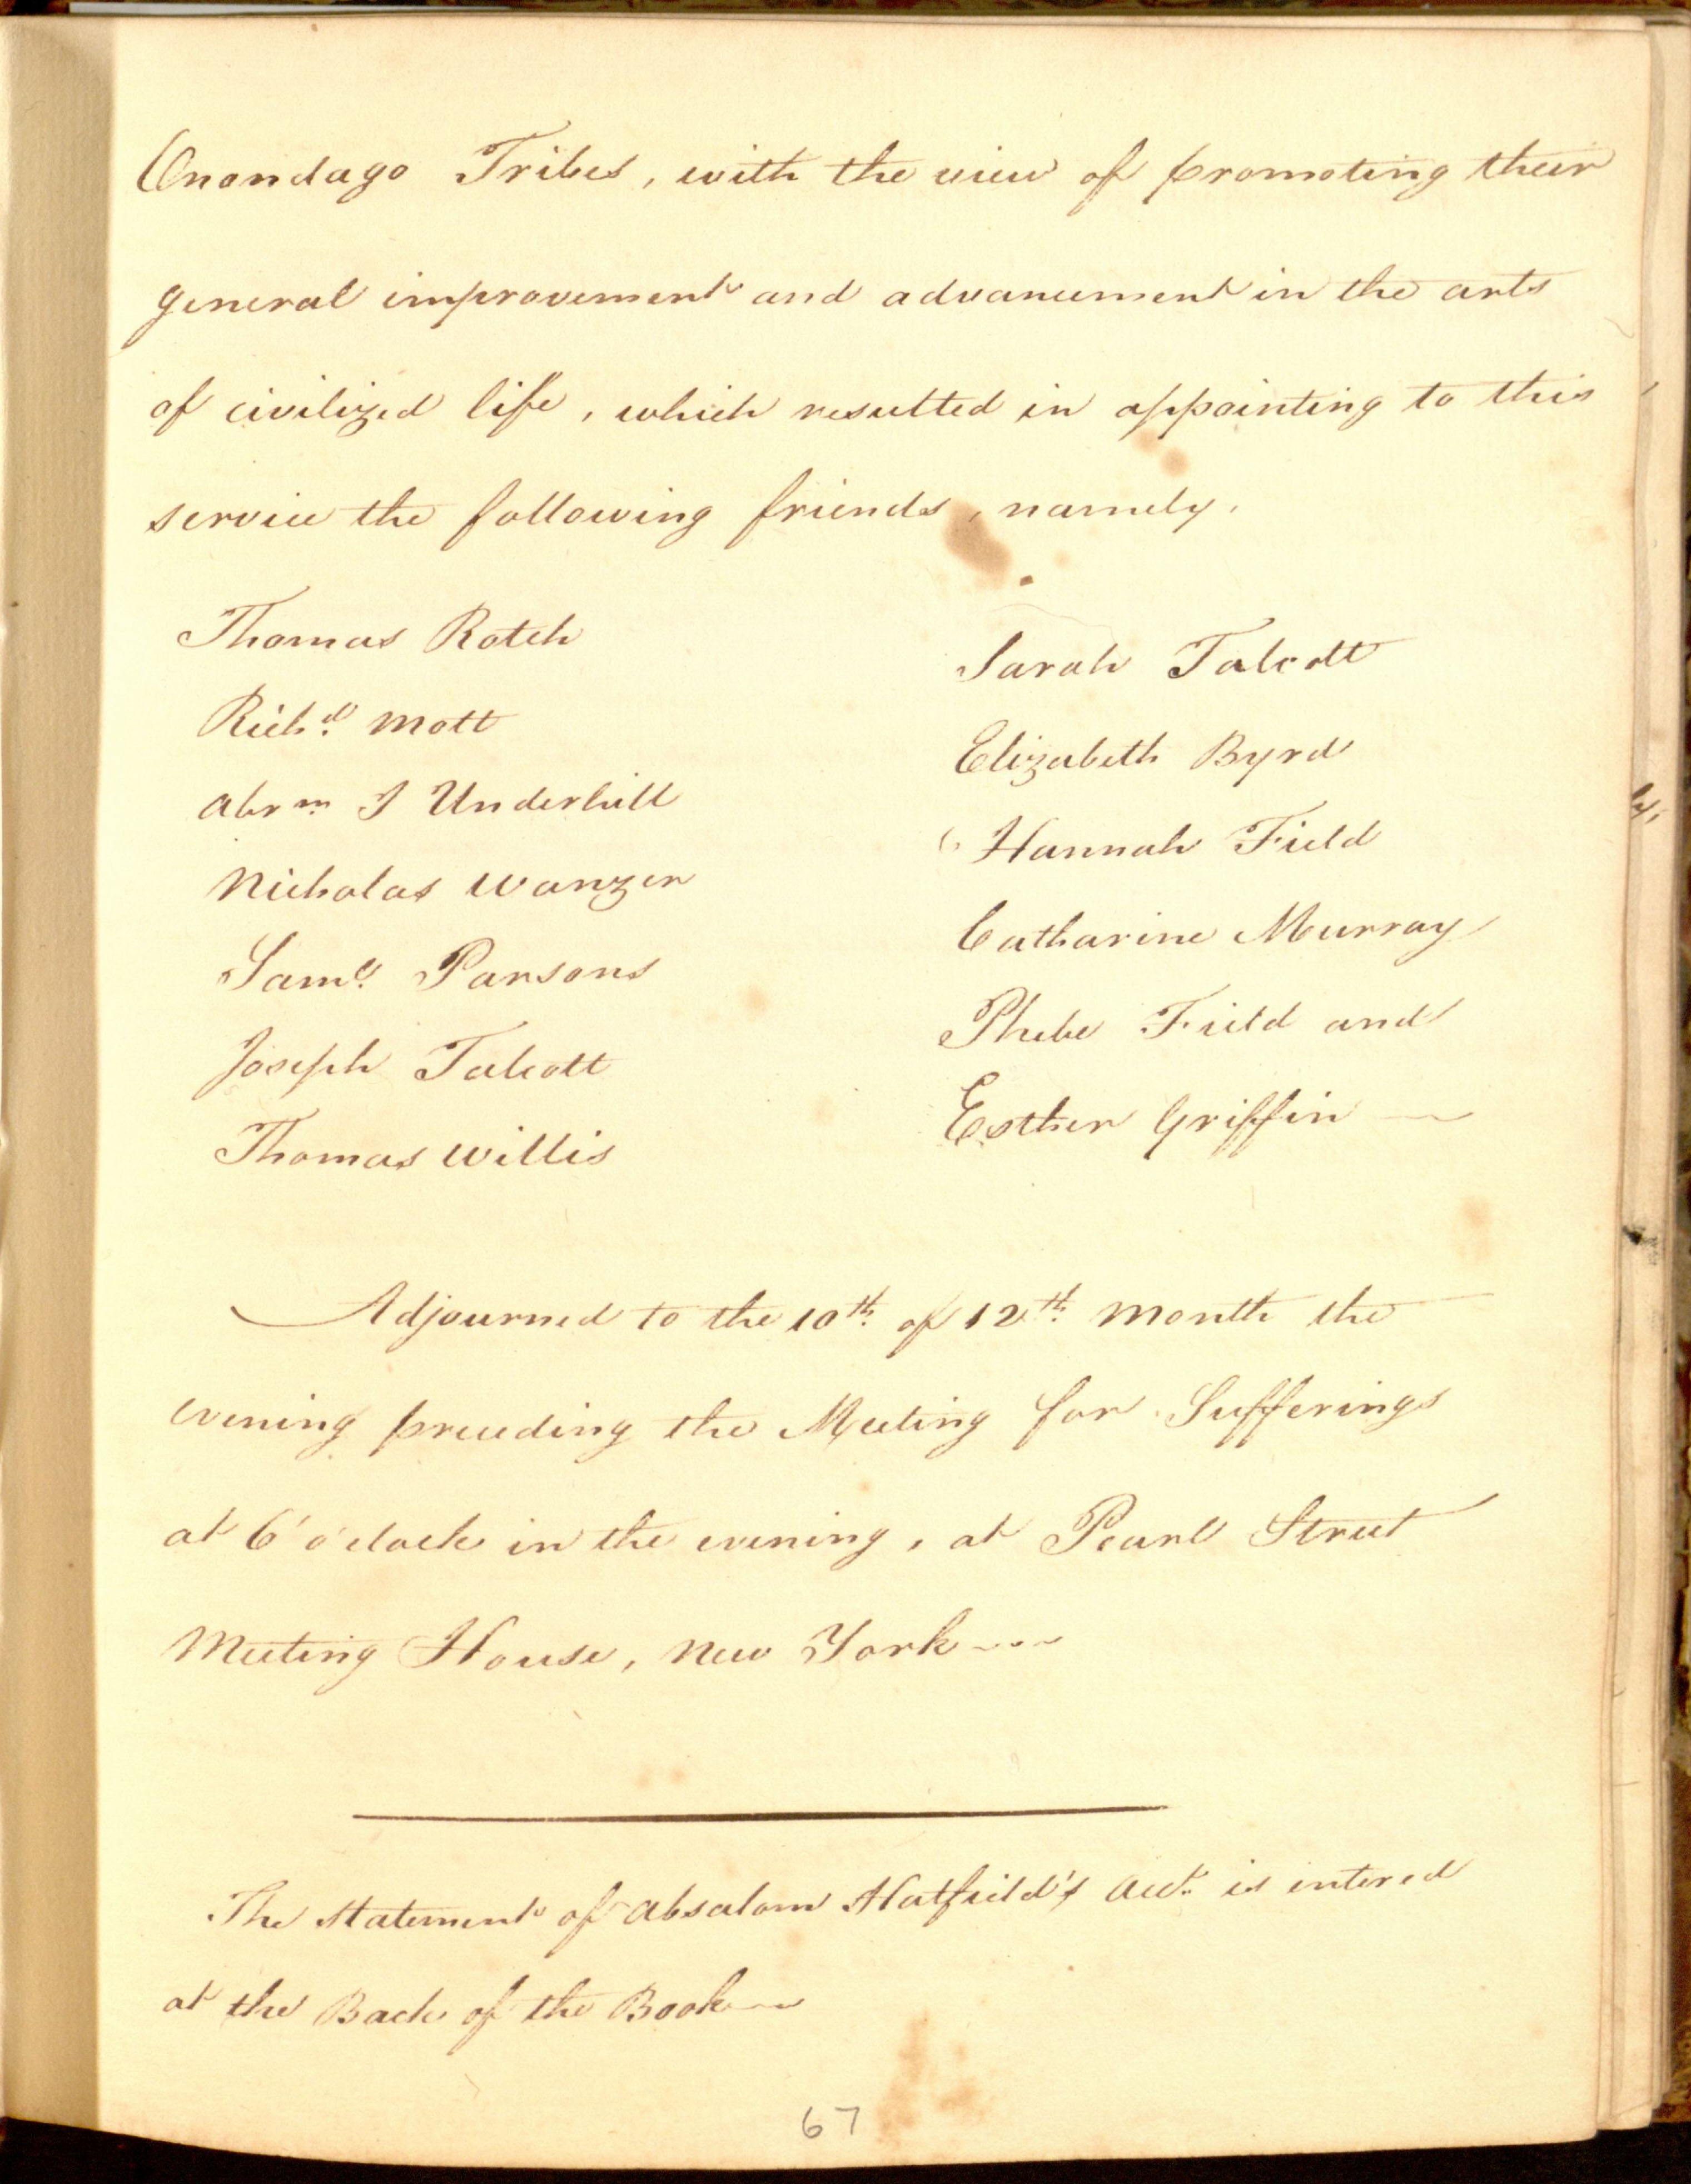 Onondago Tribes, with the view of promoting their
general improvement and advancement in the arts
of civilized life, which resulted in appointing to this
service the following friends, namely,
Thomas Rotch
Richd. Mott
Abrm. I Underhill
Nicholas Wanzer
Saml. Parsons
Joseph Talcott
Thomas Willis
Sarah Talcott
Elizabeth Byrd
Hannah Field
Catharine Murray
Phebe Field and
Esther Griffin
Adjourned to the 10th. of 12th. Month the
evening preceding the Meeting for Sufferings
at 6 o'clock in the evening, at Pearl Street
Meeting House, New York
The Statement of Absalom Hatfield's Acct. is intered
at the Back of the Book
67